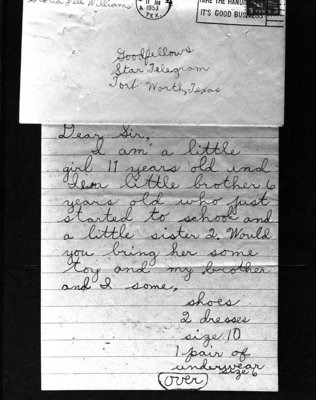 Williams
11 AM
1953
TEX.
HIRE THE HANDI
IT'S GOOD BUSINESS
Goodfellows
Star Telegram
Fort Worth, Texas
Dear Sir,
I am a little
girl 11 years old und
a little brother 6
years old who just
started to school and
a little sister 2. Would
you bring her some
toy and my brother
and I some,
shoes
2 dresses
size 10
1 pair of
underwear
size 6
(over)